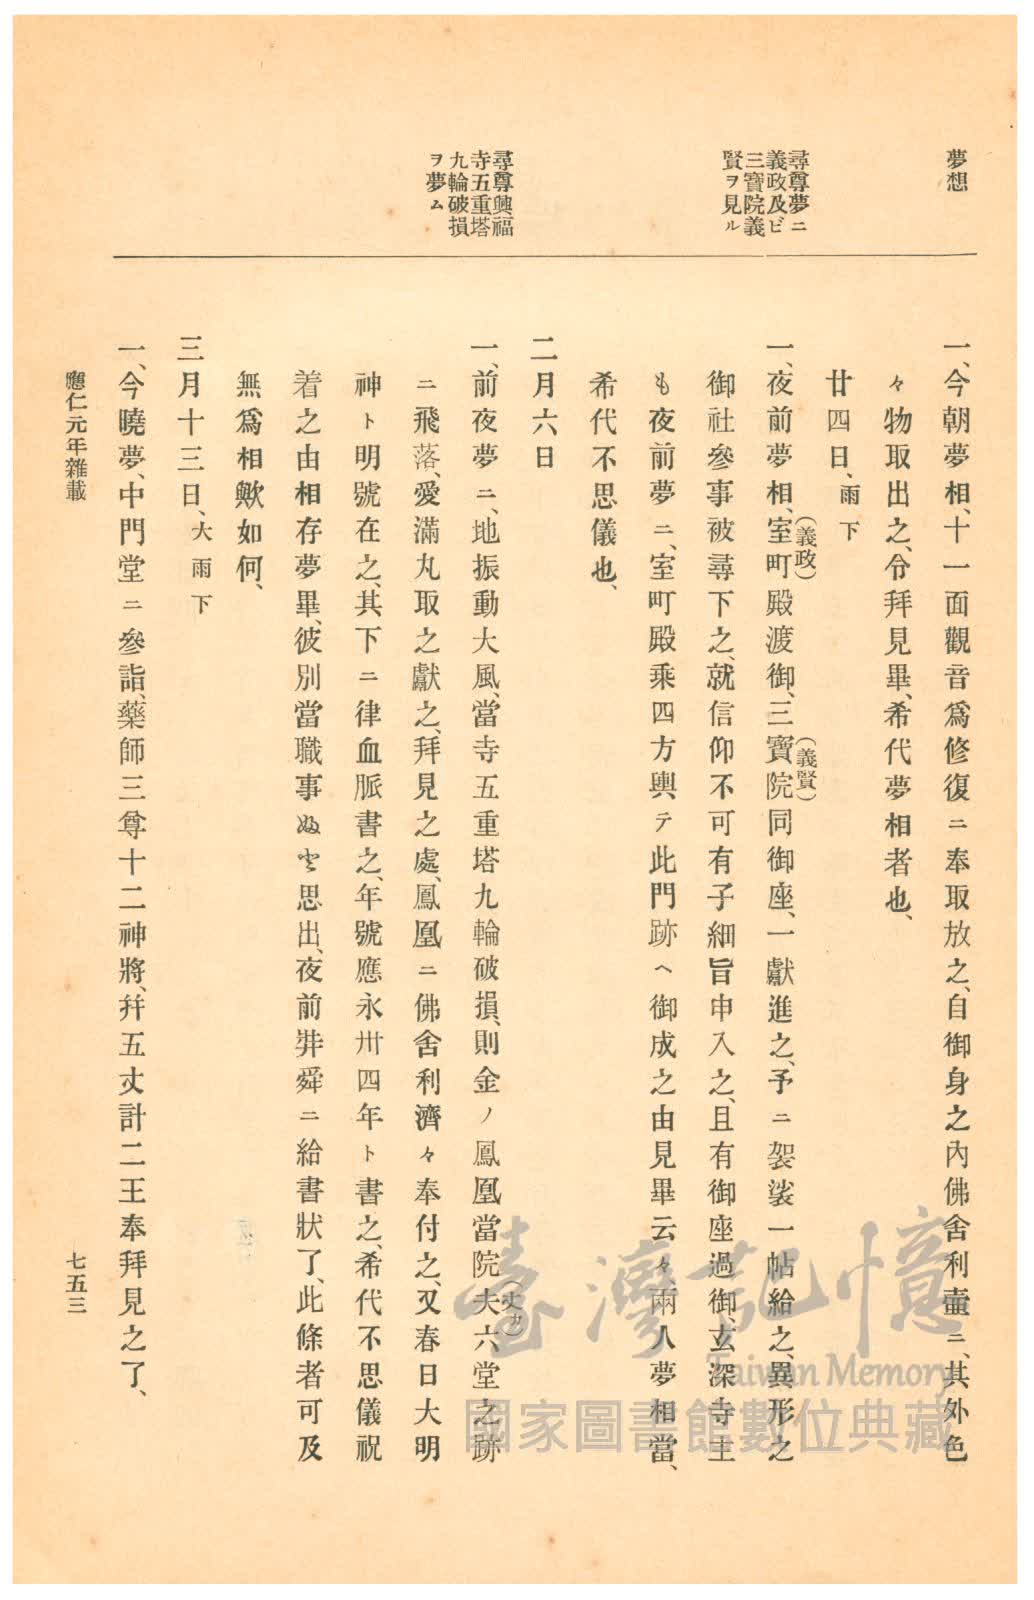 夢想
尋尊夢ニ
義政及ビ
三寶院義
賢ヲ見ル
尋尊興福
寺五重塔
九輪破損
ヲ夢ム
一、今朝夢相、十一面觀音爲修復ニ奉取放之、自御身之內佛舍利壷ニ、其外色
々物取出之、令拜見畢、希代夢相者也、
廿四日、雨下
一、夜前夢相、室町殿渡御、三寶院同御座、一獻進之、予ニ袈裟一帖給之、異形之
(義政)
(義賢)
御社參事被尋下之、就信仰不可有子細旨申入之、且有御座過御、玄深寺主
も夜前夢ニ、室町殿乘四方輿、テ此門跡ヘ御成之由見畢云々、兩人夢相當、
希代不思儀也、
二月六日
一、前夜夢ニ、地振動大風、當寺五重塔九輪破損、則金ノ鳳凰當院夫六堂之跡
(丈カ)
ニ飛落、愛滿丸取之獻之、拜見之處、鳳凰ニ佛舍利濟々奉付之、又春日大明
神ト明號在之、其下ニ律血脈書之、年號應永卅四年ト書之、希代不思儀祝
着之由相存夢畢、彼別當職事思出、夜前弉舜ニ給書狀了、此條者可及
無爲相歟如何、
三月十三日、大雨下
一、今曉夢、中門堂ニ參詣、藥師三尊十二神將、幷五丈計二王奉拜見之了、
應仁元年雜載
七五三
臺灣記憶
Taiwan Memory
國家圖書館數位典藏